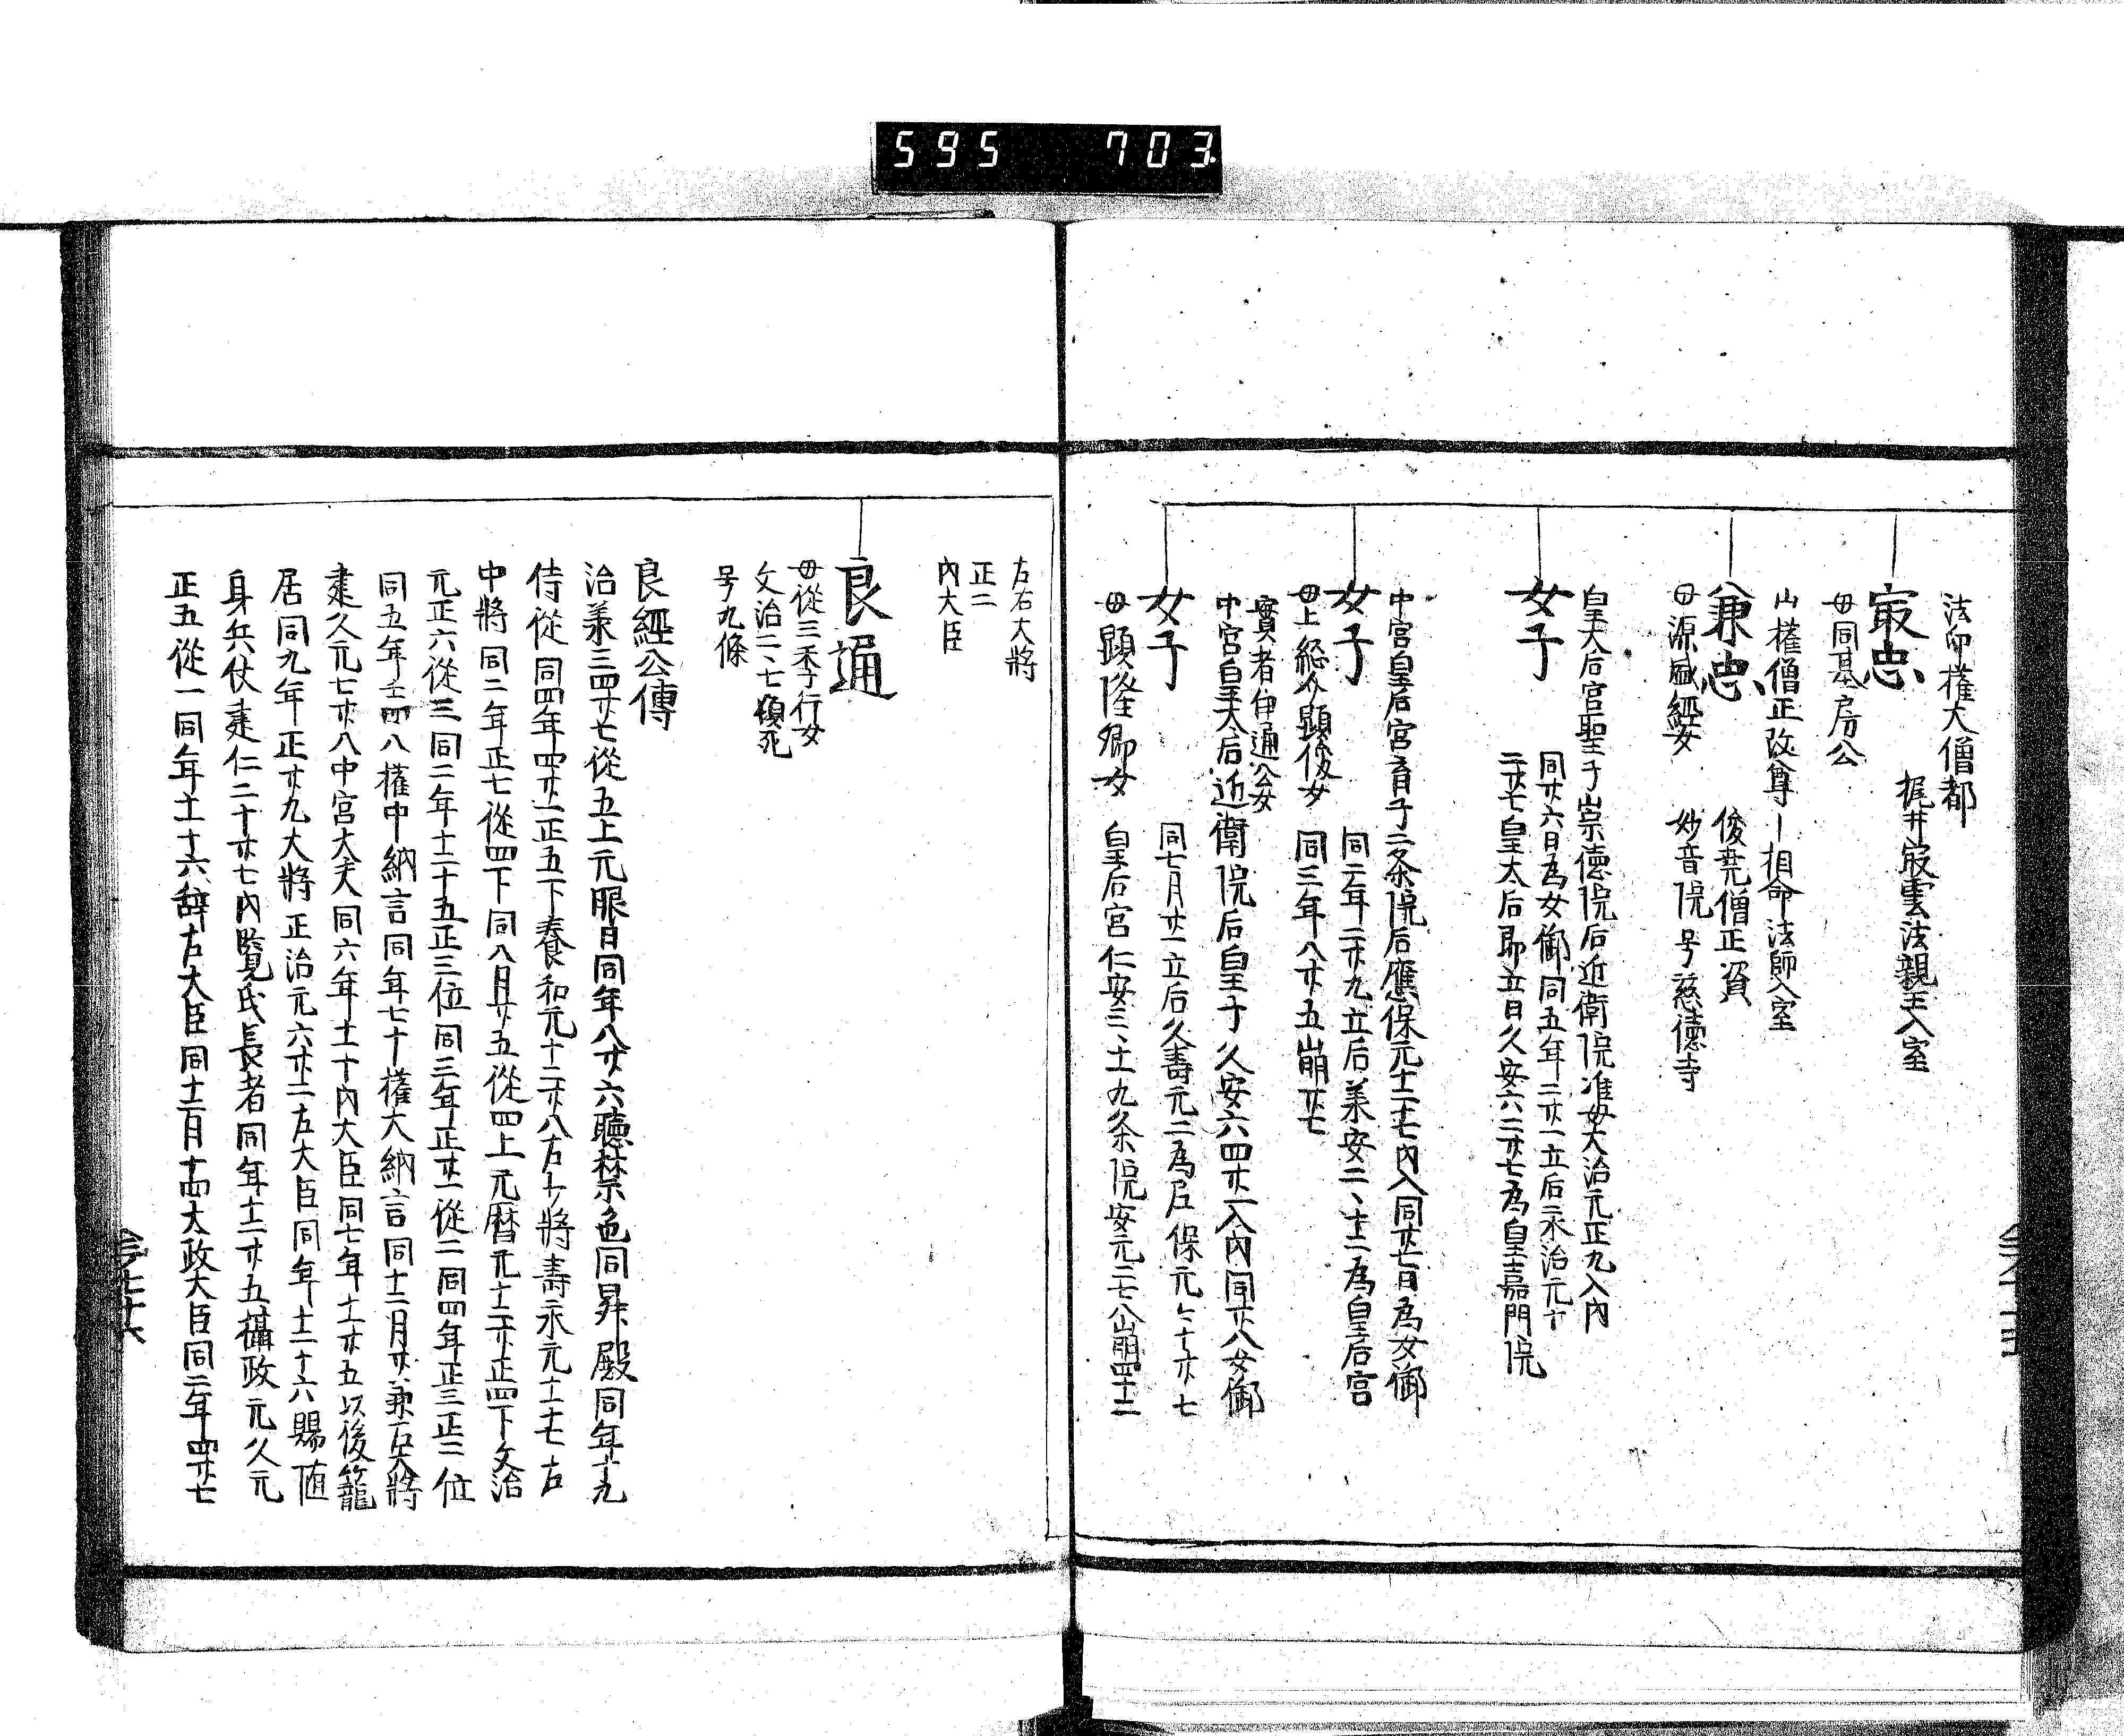 595 703
法印権大僧都
梶井㝡雲法親王入室
㝡忠
母同基房公
山權僧正改尊〡相命法師入室
兼忠
俊尭僧正資
母源盛經女
妙音院号慈德寺
皇太后宮聖子崇德院后近衛院准母大治元正九入内
女子
同廿六日為女御同五年二廿一立后永治元十
二廿七皇太后即立日久安六二廿七為皇嘉門院
中宮皇后宮育子二条院后應保元十二十七内入同廿七日為女御
女子
同二年二廿九立后美安二、十二為皇后宮
母上総介顕俊女
同三年八廿五崩廿七
實者伊通公女
中宮皇太后近衛院后皇子久安六四廿一入内同廿八女御
女子
同七月廿一立后久壽元二為尼保元々十廿七
母顕隆卿女
皇后宮仁安三、十一九条院安元二七八崩四十二
左右大將
正二
内大臣
良通
母從三季行女
文治二、七頓死
号九條
良經公傳
治美三四廿七從五上元服月同年八廿六聽禁色同昇殿同年十九
侍從同四年四廿一正五下養和元十二廿八右少將壽永元十一十七右
中將同二年正七從四下同八月廿五從四上元暦元十二廿正四下文治
元正六從三同二年十二十五正三位同三年正廿一從二同四年正三正二位
同五年十二四八權中納言同年七十權大納言同十二月廿兼右大將
建久元七廿八中宮大夫同六年十一十内大臣同七年十一廿五以後籠
居同九年正廿九大將正治元六廿二左大臣同年十二十六賜随
身兵仗建仁二十廿七内覧氏長者同年十二廿五攝政元久元
正五從一同年十一十六辞左大臣同十二月十四太政大臣同二年四廿七